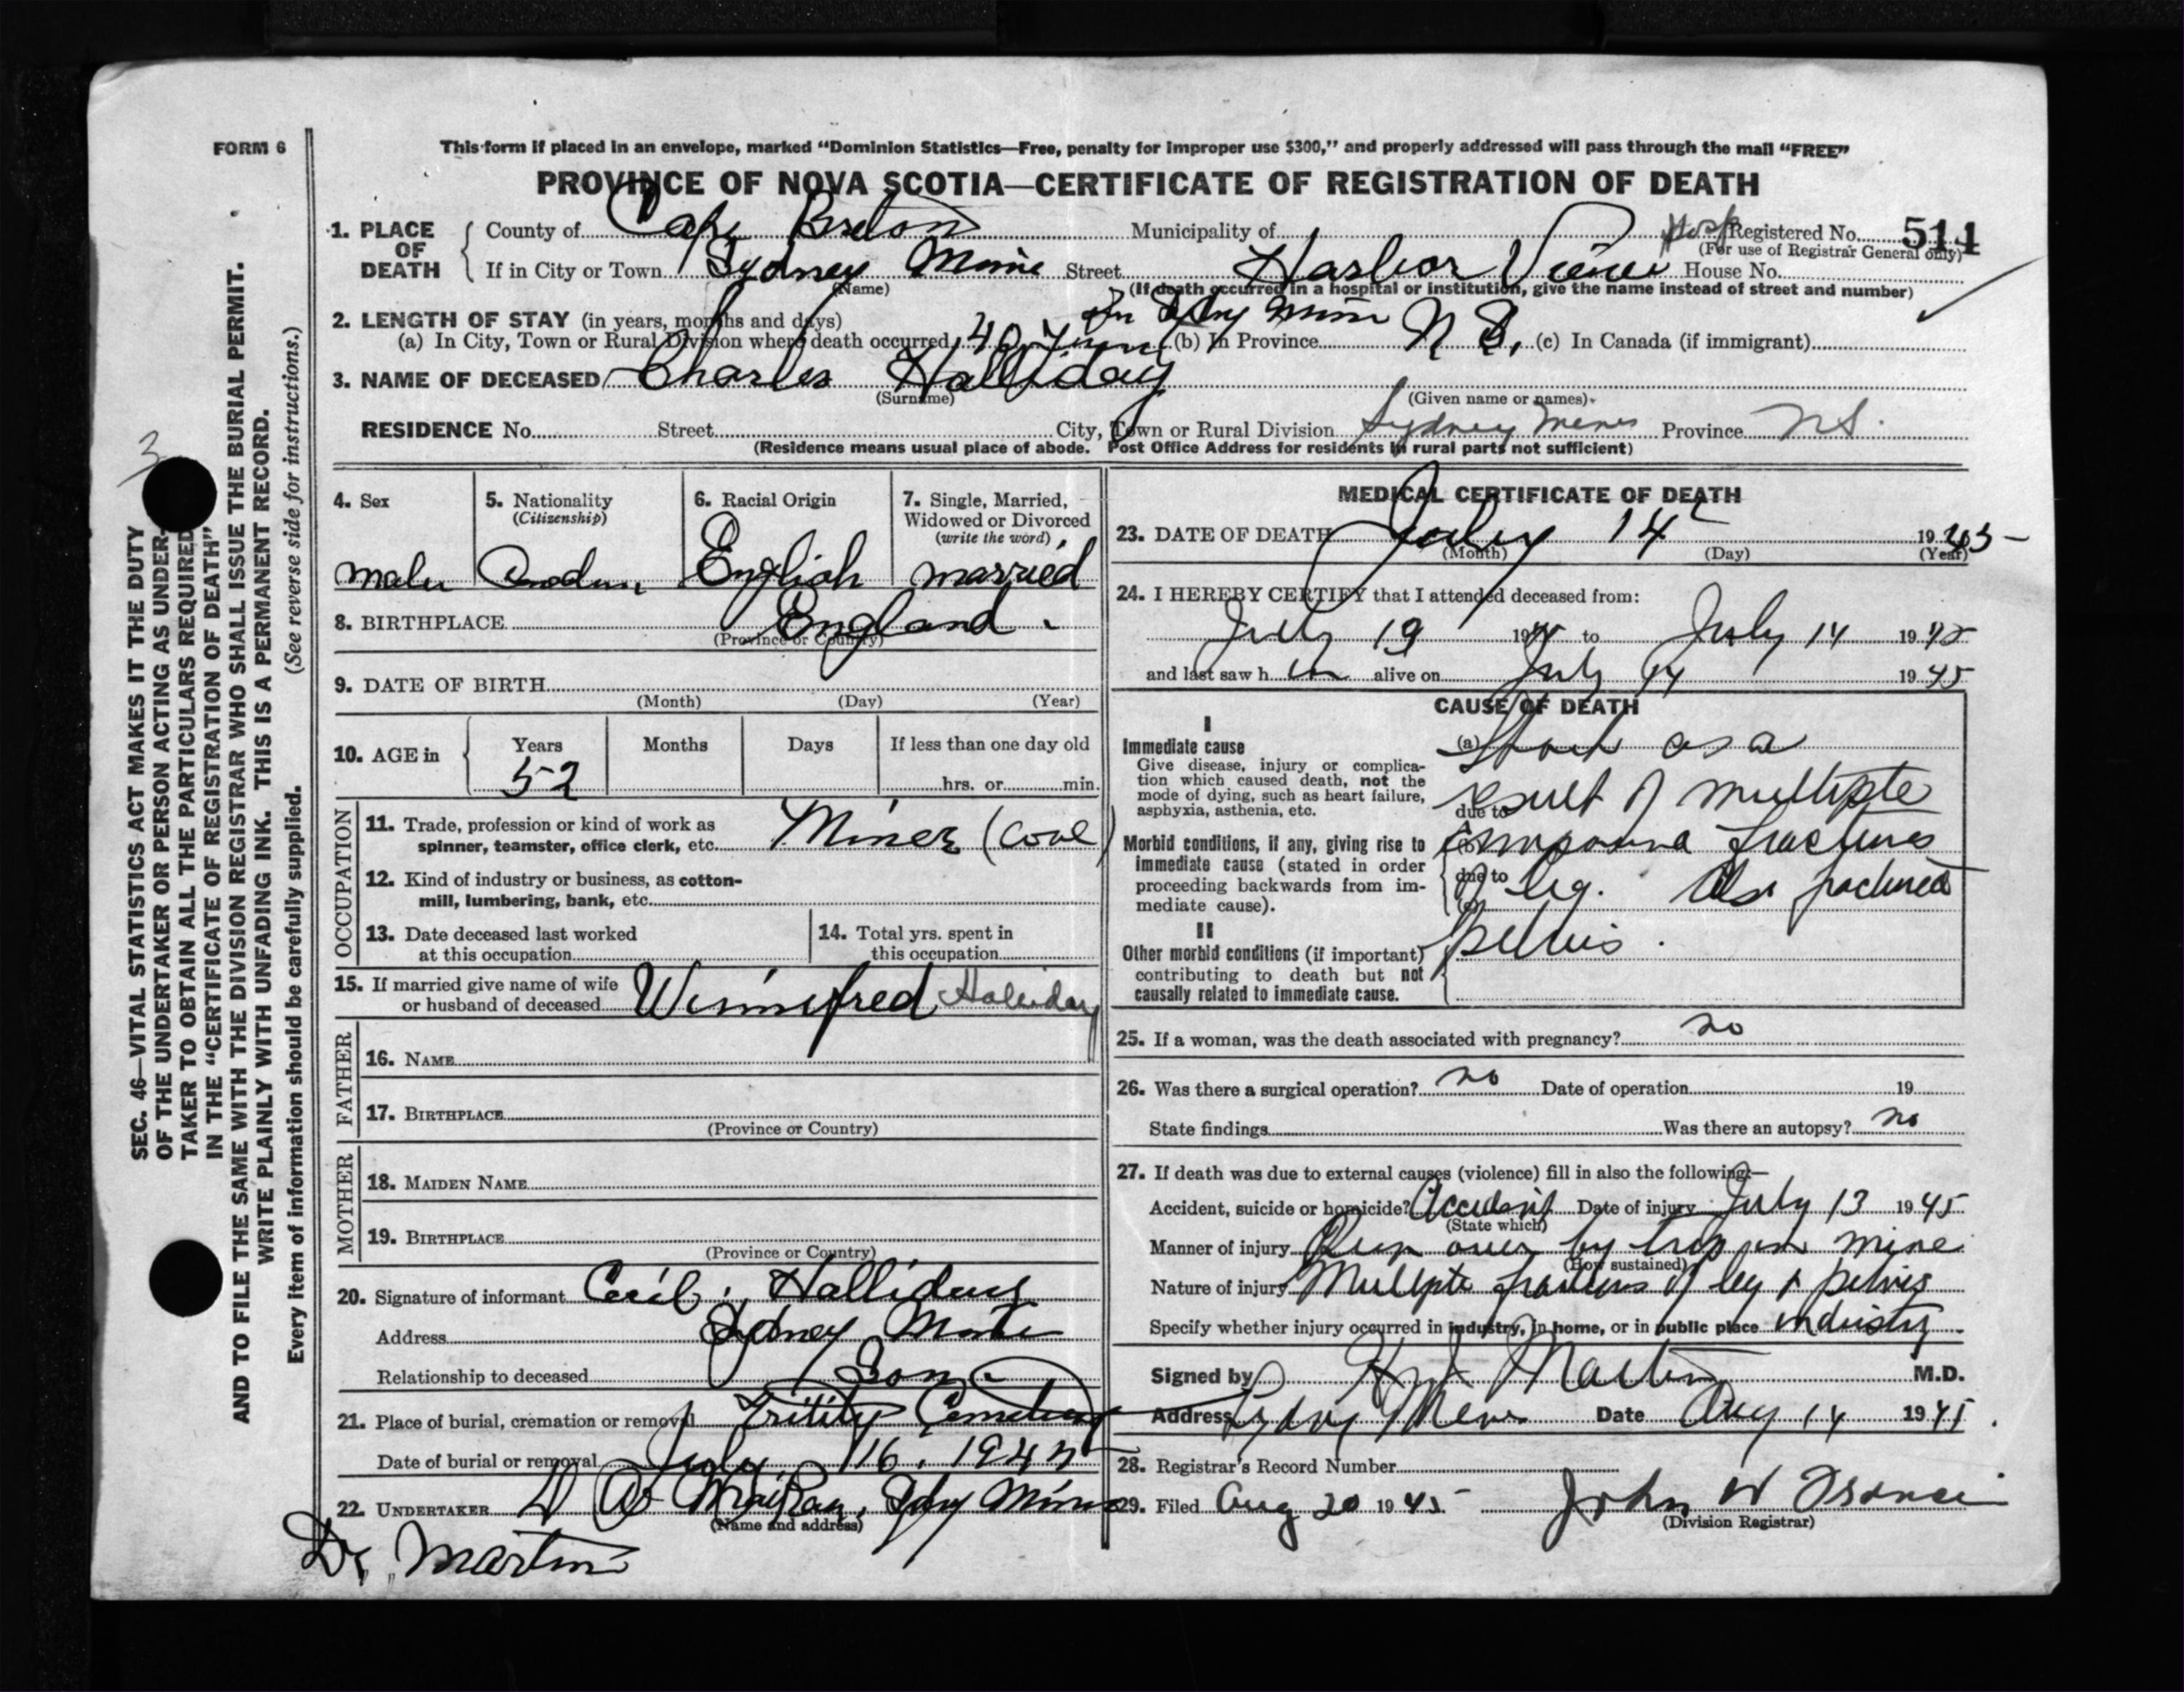 FORM 6
This form if placed in an envelope, marked "Dominion Statistics—Free, penalty for improper use $300," and properly addressed will pass through the mail "FREE"
PROVINCE OF NOVA SCOTIA—CERTIFICATE OF REGISTRATION OF DEATH
1. PLACE OF DEATH
County of Cape Breton Municipality of Hosp Registered No. 514
(For use of Registrar General only)
If in City or Town Sydney Mines Street Harbor View House No.
(Name) (If death occurred in a hospital or institution, give the name instead of street and number)
2. LENGTH OF STAY (in years, months and days) In Sydny Mines
(a) In City, Town or Rural Division where death occurred 40 years (b) In Province N S. (c) In Canada (if immigrant)
3. NAME OF DECEASED Charles Halliday
(Surname) (Given name or names)
RESIDENCE No. Street City, Town or Rural Division Sydney Mines Province NS.
(Residence means usual place of abode. Post Office Address for residents in rural parts not sufficient)
4. Sex
male
5. Nationality
(Citizenship)
6. Racial Origin
English
7. Single, Married,
Widowed or Divorced
(write the word)
married
8. BIRTHPLACE England.
(Province or Country)
9. DATE OF BIRTH
(Month) (Day) (Year)
10. AGE in
Years Months Days If less than one day old
52 hrs. or min.
OCCUPATION
11. Trade, profession or kind of work as
spinner, teamster, office clerk, etc. Miner (Coal)
12. Kind of industry or business, as cotton-
mill, lumbering, bank, etc.
13. Date deceased last worked
at this occupation
14. Total yrs. spent in
this occupation
15. If married give name of wife
or husband of deceased Winnifred Halliday
FATHER
16. NAME
17. BIRTHPLACE
(Province or Country)
MOTHER
18. MAIDEN NAME
19. BIRTHPLACE
(Province or Country)
20. Signature of informant Cecil Halliday
Address Sydney Mines
Relationship to deceased Son.
21. Place of burial, cremation or removal Cemetery
Date of burial or removal July 16, 1945
22. UNDERTAKER Sdny Mines
(Name and address)
Dr. Martin
MEDICAL CERTIFICATE OF DEATH
23. DATE OF DEATH July 14 1945
(Month) (Day) (Year)
24. I HEREBY CERTIFY that I attended deceased from:
July 19 to July 14 1945
and last saw h im alive on July 14 1945
CAUSE OF DEATH
I
Immediate cause
Give disease, injury or complica-
tion which caused death, not the
mode of dying, such as heart failure,
asphyxia, asthenia, etc.
Morbid conditions, if any, giving rise to
immediate cause (stated in order
proceeding backwards from im-
mediate cause).
II
Other morbid conditions (if important)
contributing to death but not
causally related to immediate cause.
(a) Shock as a
due to result of multiple
(b) compound fractures
due to of leg. Also fractured
(c)
pelvis.
25. If a woman, was the death associated with pregnancy? no
26. Was there a surgical operation? no Date of operation 19
State findings Was there an autopsy? no
27. If death was due to external causes (violence) fill in also the following:—
Accident, suicide or homicide? Accident Date of injury July 13 1945
(State which)
Manner of injury Run over by trip in mine
(How sustained)
Nature of injury Multiple fractures of leg & pelvis
Specify whether injury occurred in industry, in home, or in public place industry
Signed by Martin M.D.
Address Sydney Mines Date Aug 14 1945.
28. Registrar's Record Number
29. Filed Aug 20 1945 John W
(Division Registrar)
SEC. 46—VITAL STATISTICS ACT MAKES IT THE DUTY
OF THE UNDERTAKER OR PERSON ACTING AS UNDER-
TAKER TO OBTAIN ALL THE PARTICULARS REQUIRED
IN THE "CERTIFICATE OF REGISTRATION OF DEATH"
AND TO FILE THE SAME WITH THE DIVISION REGISTRAR WHO SHALL ISSUE THE BURIAL PERMIT.
WRITE PLAINLY WITH UNFADING INK. THIS IS A PERMANENT RECORD.
Every item of information should be carefully supplied. (See reverse side for instructions.)
3